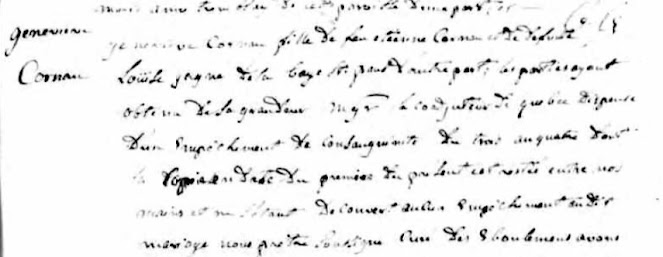 de cette paroisse d'une part, et
genevieve
genevieve Cornau fille de feu etienne Cornau et de defunte
Cornau
Louise gagné de la baye St paul d'autre part; les parties ayant
obtenu de sa grandeur Mgr le coadjuteur de quebec dispense
D'un Empêchement de Consanguinité du trois au quatre dont
la Copie en date du premier du présent est restée entre nos
mains et ne s'étant decouvert aucun Empêchement au dit
mariage nous prêtre soussigné Curé des Eboulemens avons